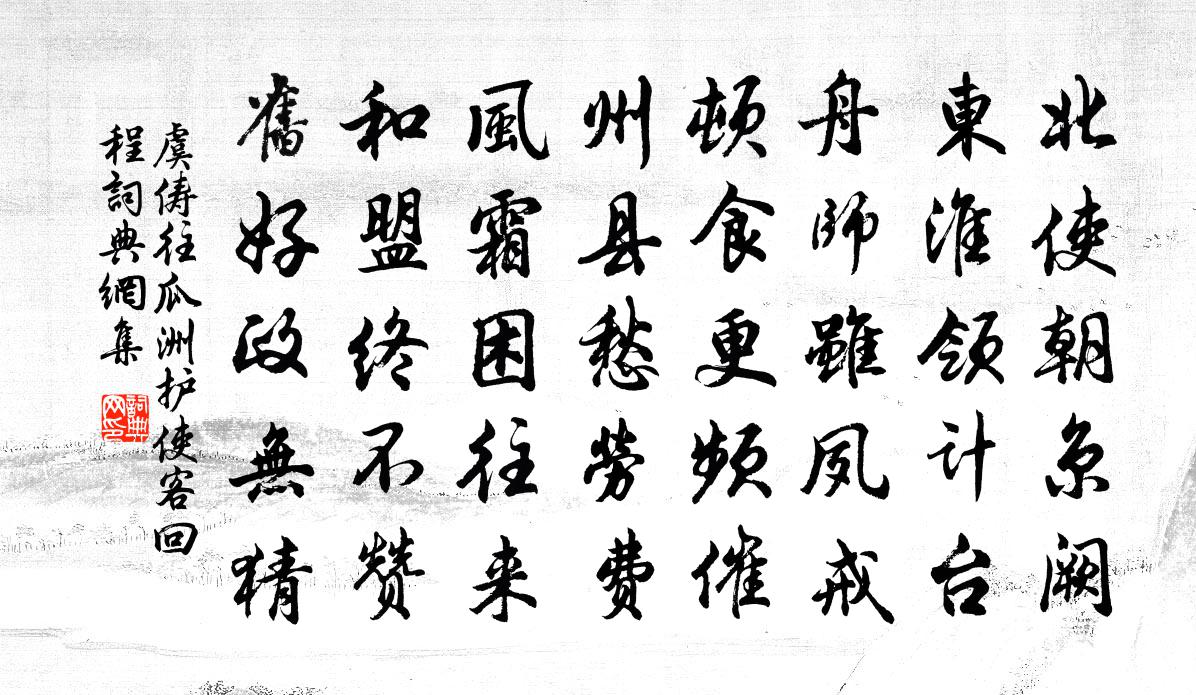 北使朝京阙
東淮领计台
舟師雖夙戒
顿食更频催
州县愁勞费
風霜困往来
和盟终不赞
舊好政無猜
虞俦往瓜洲护使客回
程詞典網集
詞典网印